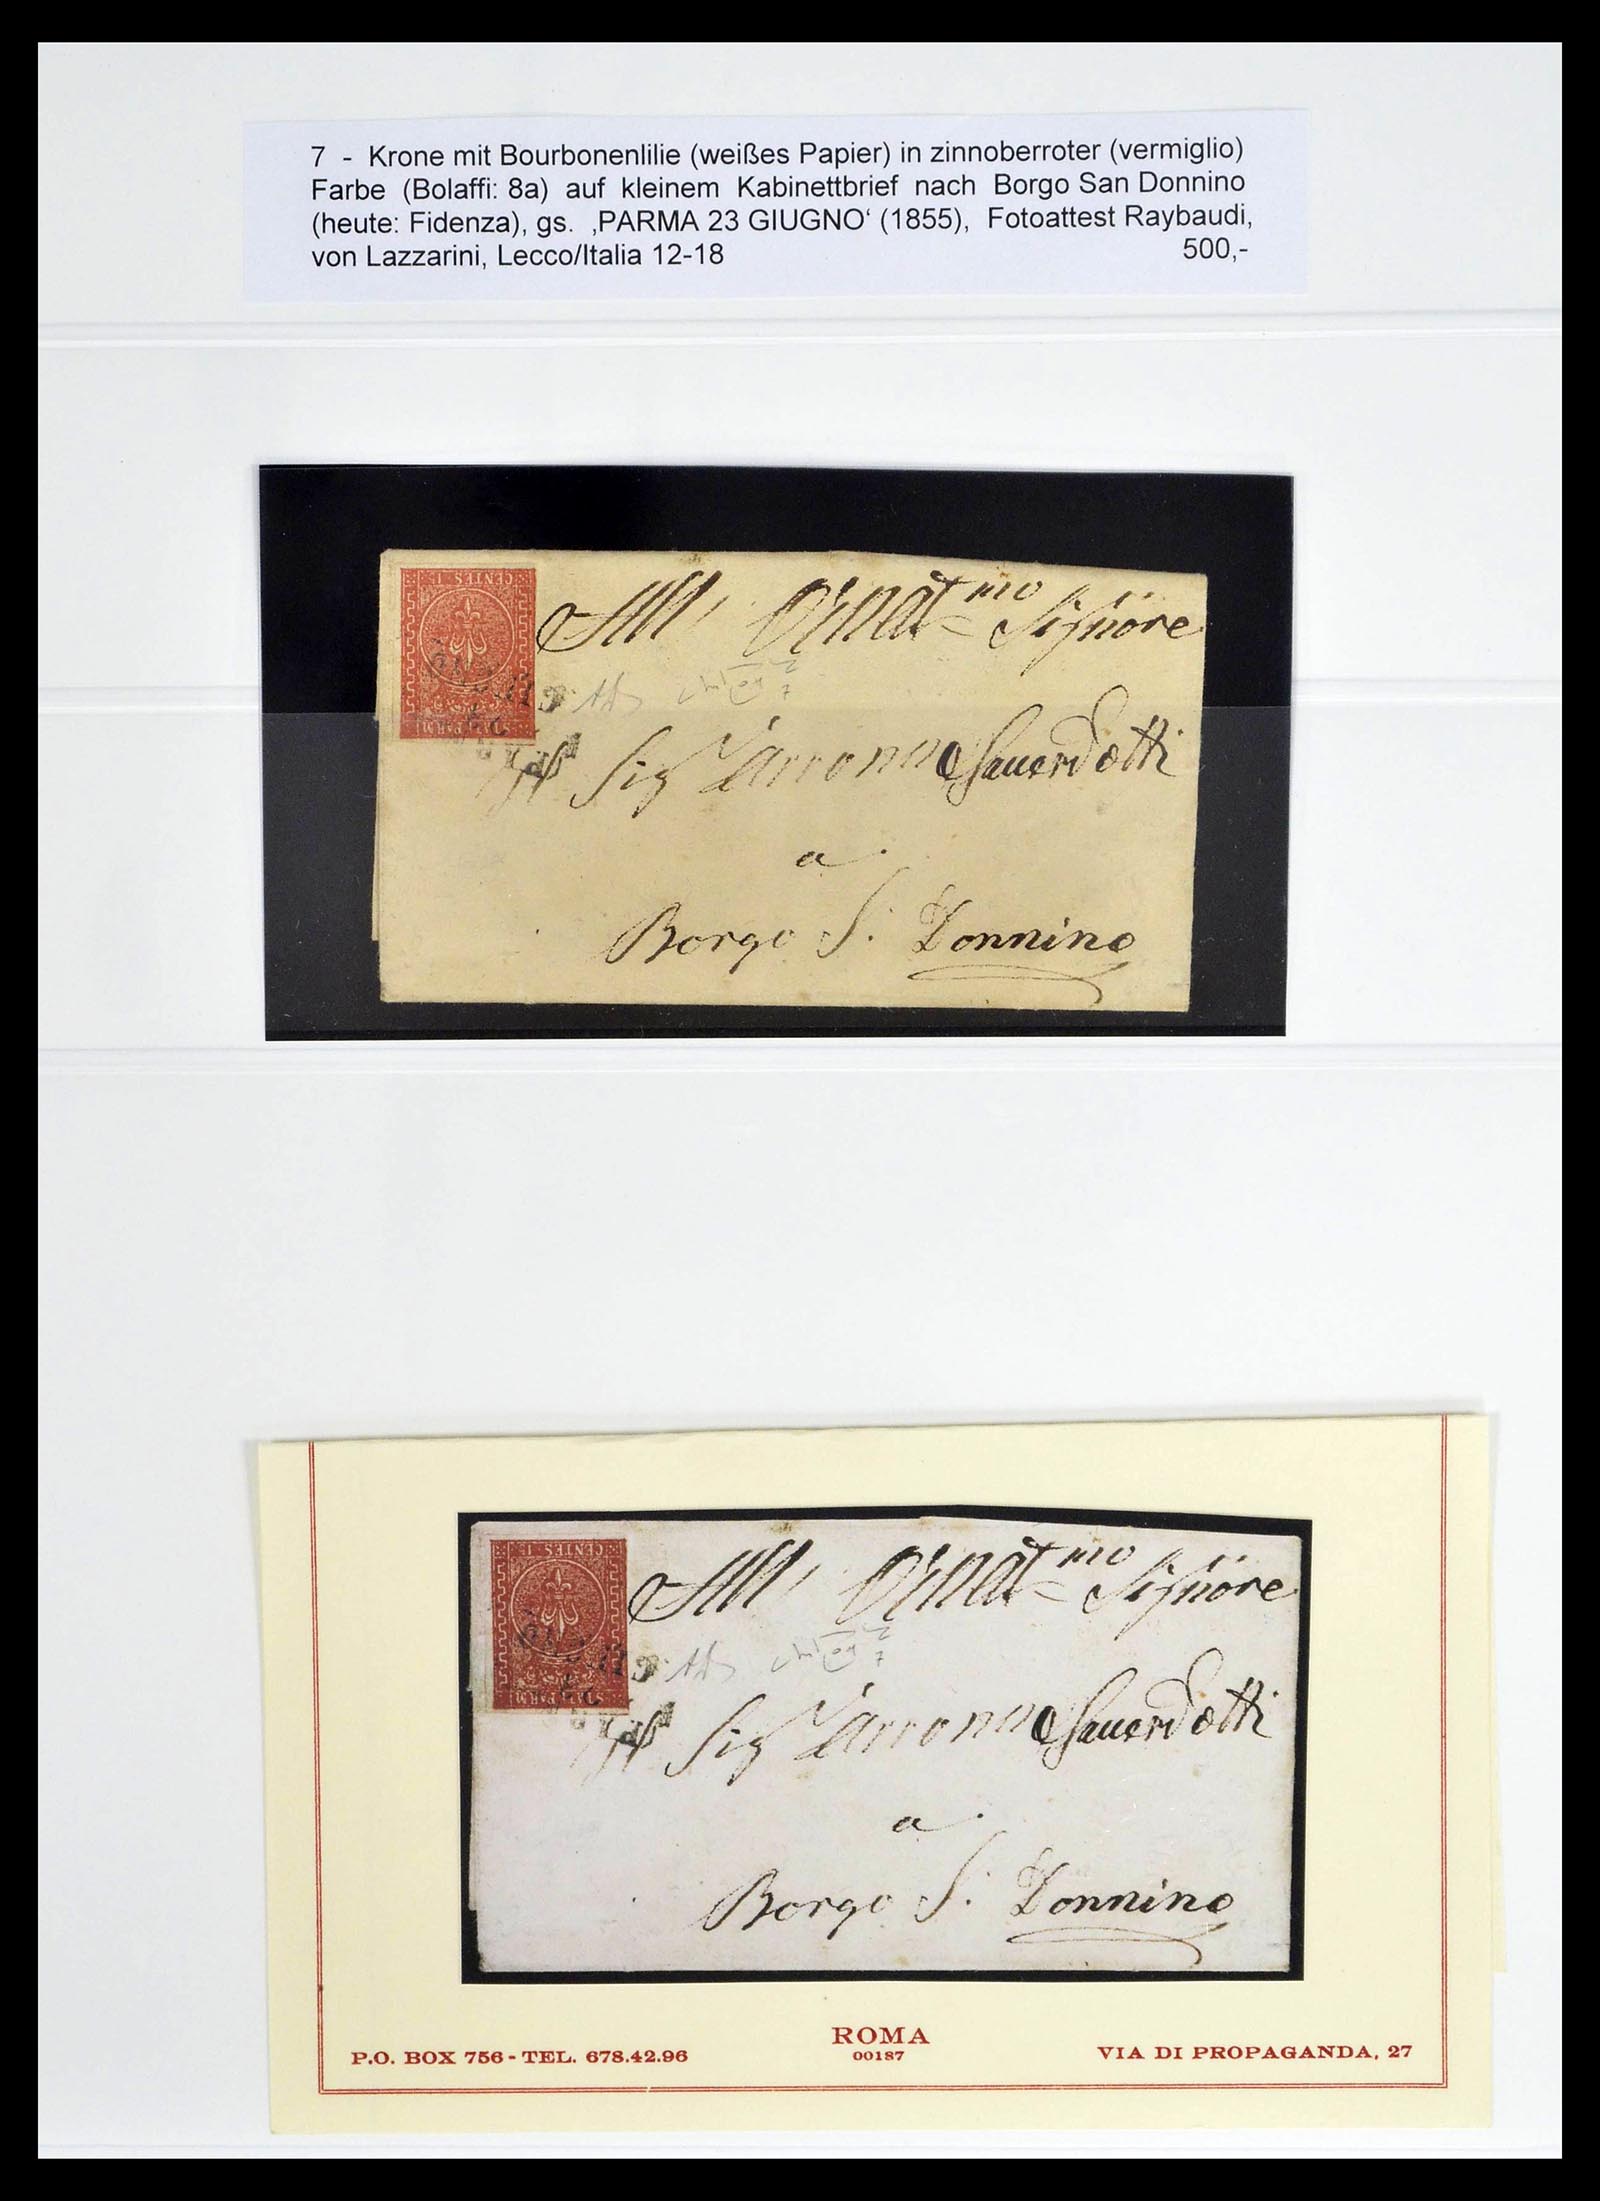 7 - Krone mit Bourbonenlilie (weißes Papier) in zinnoberroter (vermiglio)
Farbe (Bolaffi: 8a) auf kleinem Kabinettbrief nach Borgo San Donnino
(heute: Fidenza), gs. ‚PARMA 23 GIUGNO‘ (1855), Fotoattest Raybaudi,
von Lazzarini, Lecco/Italia 12-18 500,-
CENTES 15
STATI PARM
All' Ornat.mo Signore
Sig
a
Borgo S. Donnino
CENTES 15
STATI PARM
All' Ornat.mo Signore
Sig
a
Borgo S. Donnino
ROMA
00187
P.O. BOX 756 - TEL. 678.42.96
VIA DI PROPAGANDA, 27